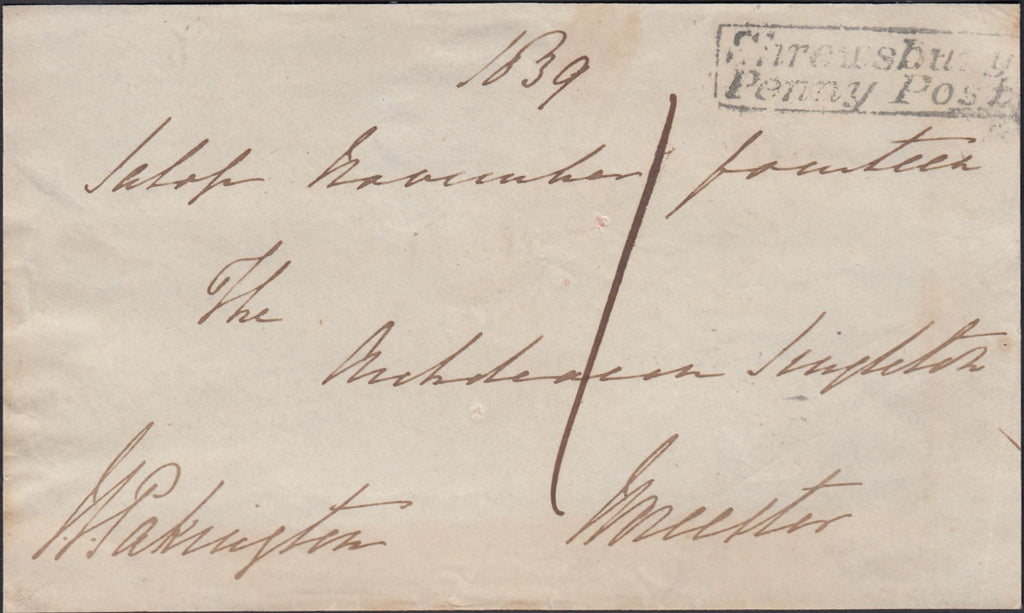 1839
Shrewsbury
Penny Post
Salop November fourteen
1
The
Archdeacon Singleton
Worcester
J.S. Pakington